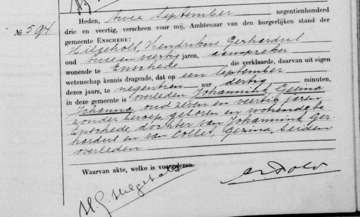 Nº 594
Heden, twee September negentienhonderd
drie en veertig, verscheen voor mij, Ambtenaar van den burgerlijken stand der
gemeente ENSCHEDE:
Hilgeholt, Hendrikus Gerhardus
oud jaren,
wonende te Enschede die verklaarde, daarvan uit eigen
wetenschap kennis dragende, dat op een September
dezes jaars, te negentien uur dertig minuten,
in deze gemeente is overleden Johannink, Gesina
Johanna, oud zeven en veertig jaren
zonder beroep geboren en wonende te
Enschede dochter van Johannink Ger-
hardus en van Gezina, beiden
overleden
Waarvan akte, welke is voorgelezen.